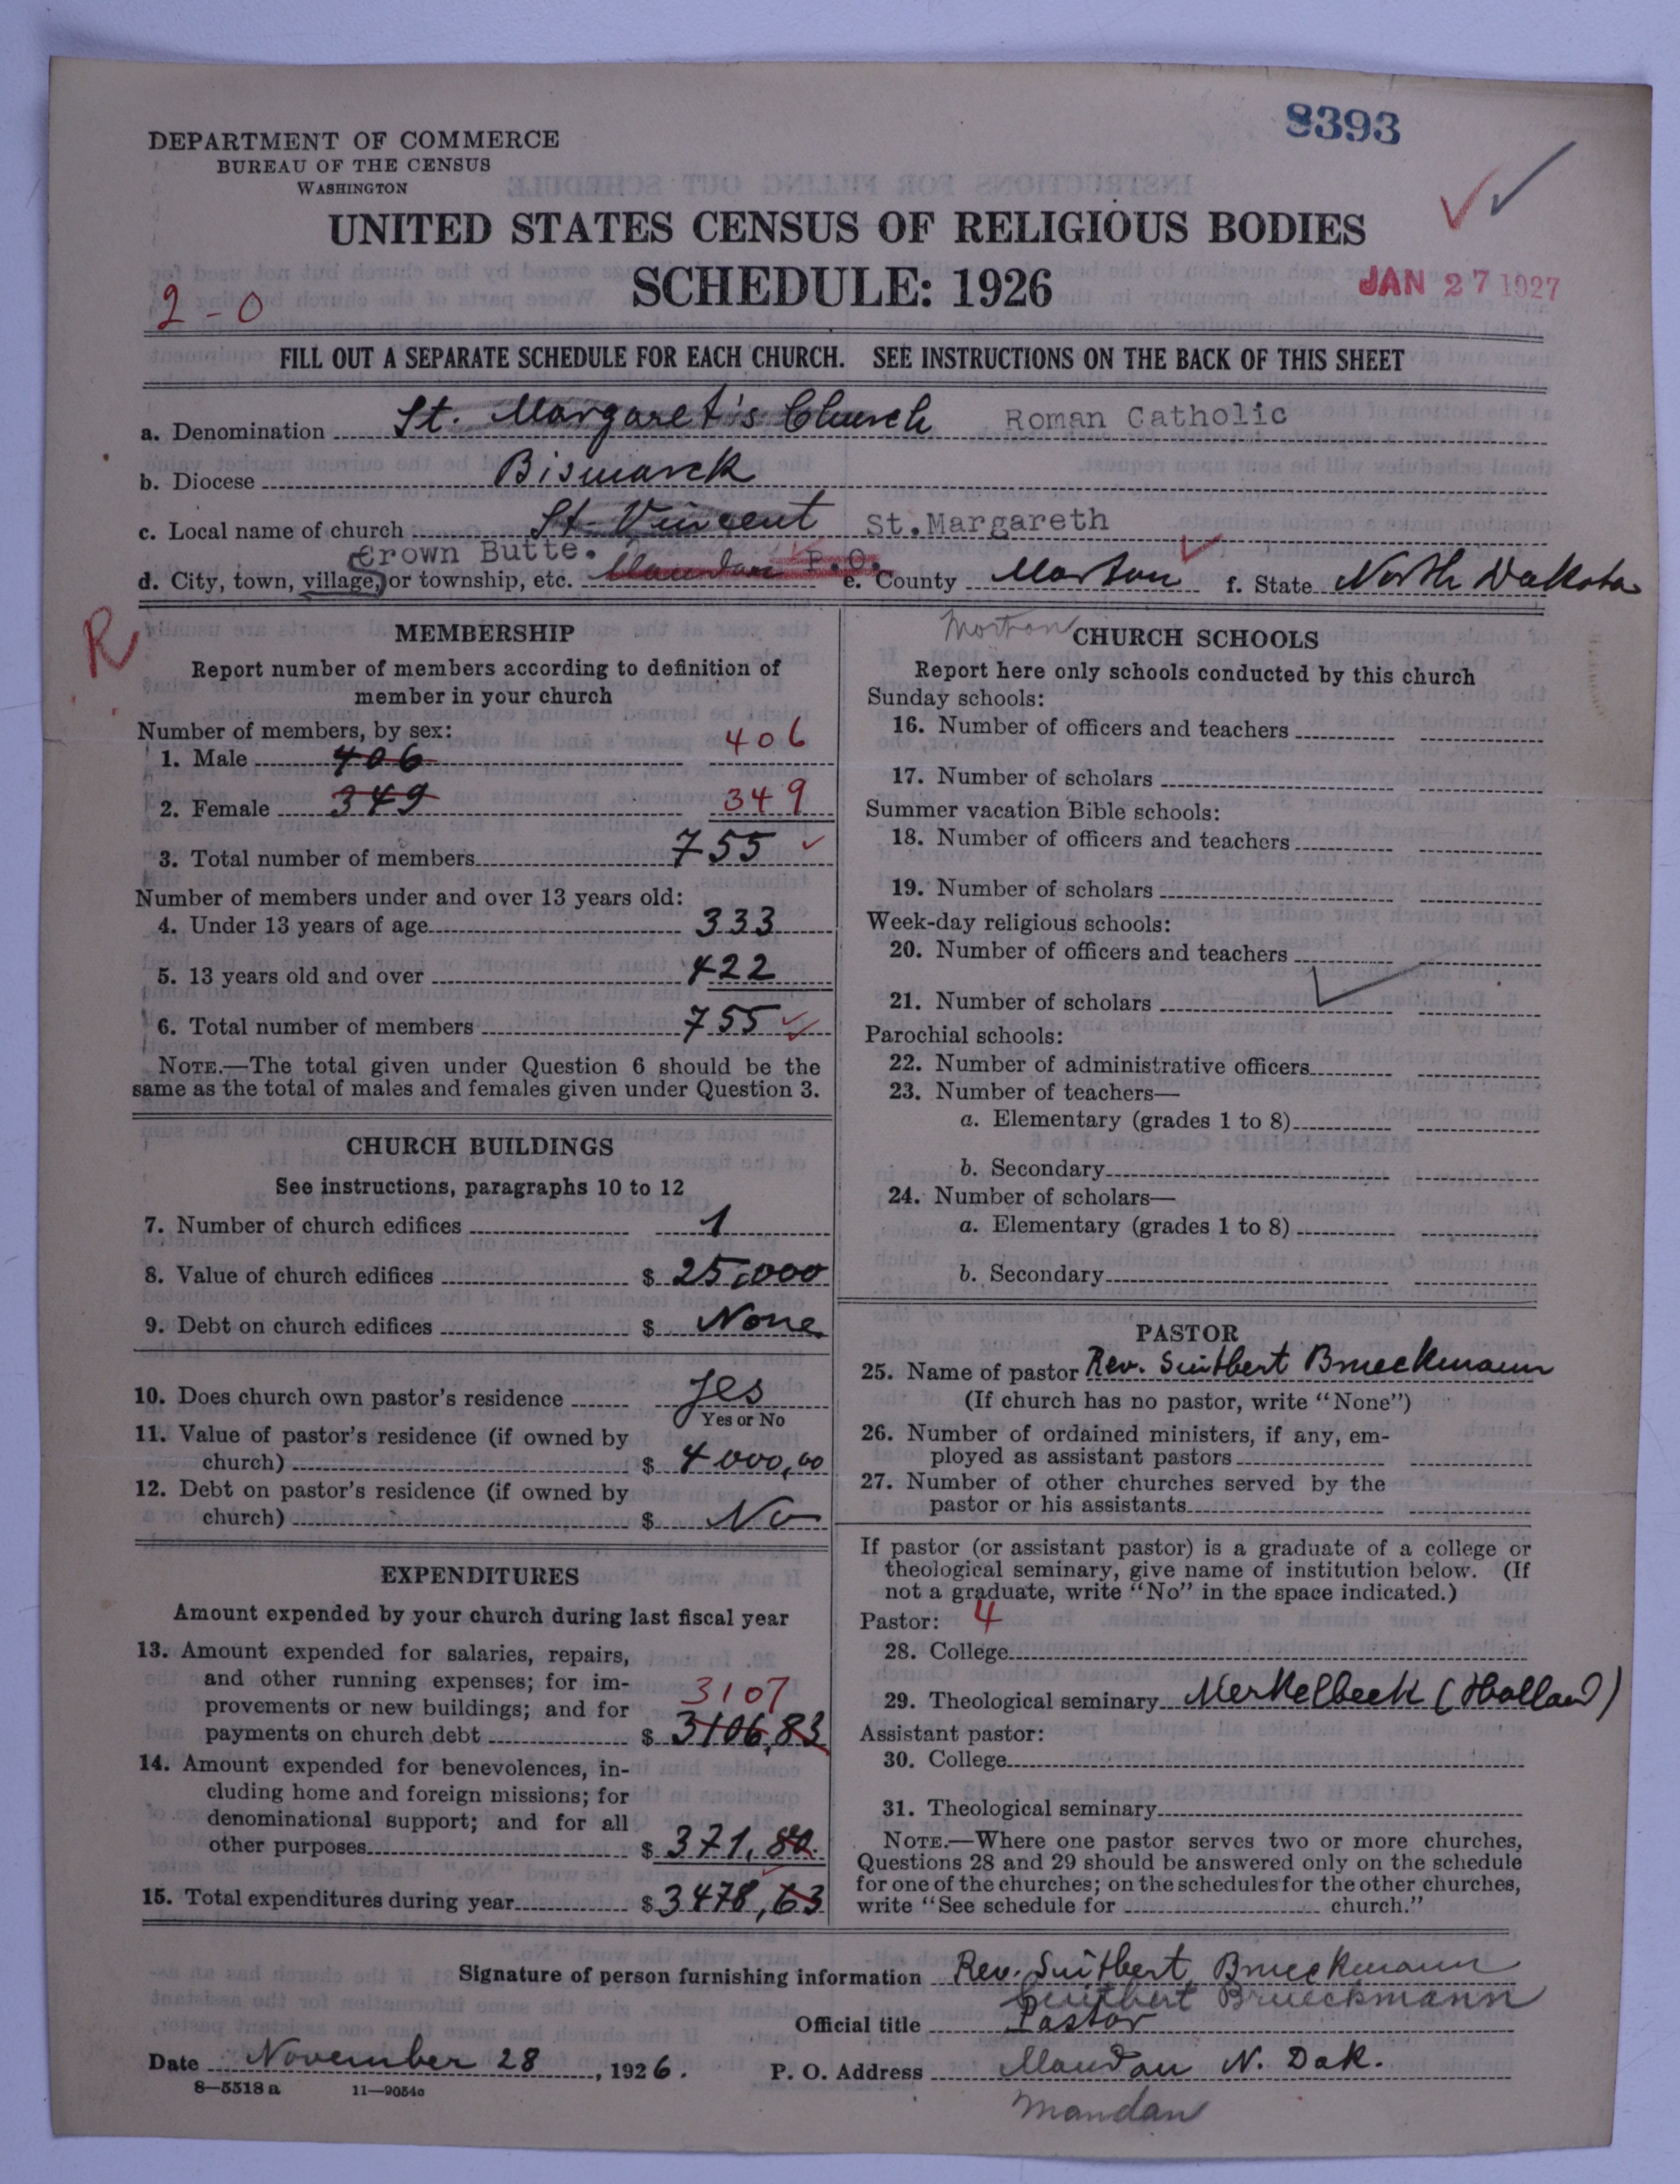 8393
DEPARTMENT OF COMMERCE
BUREAU OF THE CENSUS
WASHINGTON
UNITED STATES CENSUS OF RELIGIOUS BODIES
SCHEDULE: 1926
JAN 27 1927
2-0
FILL OUT A SEPARATE SCHEDULE FOR EACH CHURCH. SEE INSTRUCTIONS ON THE BACK OF THIS SHEET
a. Denomination St. Margaret's Church Roman Catholic
b. Diocese Bismarck
c. Local name of church St. Vincent St.Margareth
Crown Butte.
d. City, town, village, or township, etc. Mandan P.O. e. County Morton f. State North Dakota
R
Morton
MEMBERSHIP
Report number of members according to definition of
member in your church
Number of members, by sex:
1. Male 406 406
2. Female 349 349
3. Total number of members 755
Number of members under and over 13 years old:
4. Under 13 years of age 333
5. 13 years old and over 422
6. Total number of members 755
NOTE.—The total given under Question 6 should be the
same as the total of males and females given under Question 3.
CHURCH BUILDINGS
See instructions, paragraphs 10 to 12
7. Number of church edifices 1
8. Value of church edifices $ 25,000
9. Debt on church edifices $ None
10. Does church own pastor's residence yes
Yes or No
11. Value of pastor's residence (if owned by
church) $ 4000,00
12. Debt on pastor's residence (if owned by
church) $ No
EXPENDITURES
Amount expended by your church during last fiscal year
13. Amount expended for salaries, repairs,
and other running expenses; for im-
provements or new buildings; and for 3107
payments on church debt $ 3106,83
14. Amount expended for benevolences, in-
cluding home and foreign missions; for
denominational support; and for all
other purposes $ 371,80.
15. Total expenditures during year $ 3478,63
CHURCH SCHOOLS
Report here only schools conducted by this church
Sunday schools:
16. Number of officers and teachers
17. Number of scholars
Summer vacation Bible schools:
18. Number of officers and teachers
19. Number of scholars
Week-day religious schools:
20. Number of officers and teachers
21. Number of scholars
Parochial schools:
22. Number of administrative officers
23. Number of teachers—
a. Elementary (grades 1 to 8)
b. Secondary
24. Number of scholars—
a. Elementary (grades 1 to 8)
b. Secondary
PASTOR
25. Name of pastor Rev. Suitbert Brueckmann
(If church has no pastor, write "None")
26. Number of ordained ministers, if any, em-
ployed as assistant pastors
27. Number of other churches served by the
pastor or his assistants
If pastor (or assistant pastor) is a graduate of a college or
theological seminary, give name of institution below. (If
not a graduate, write "No" in the space indicated.)
Pastor: 4
28. College
29. Theological seminary Merkelbeek (Holland)
Assistant pastor:
30. College
31. Theological seminary
NOTE.—Where one pastor serves two or more churches,
Questions 28 and 29 should be answered only on the schedule
for one of the churches; on the schedules for the other churches,
write "See schedule for church."
Signature of person furnishing information Rev. Suitbert Brueckmann
Suitbert Brueckmann
Official title Pastor
Date November 28, 1926. P. O. Address Mandan N. Dak.
8—5518 a 11—9054c
Mandan